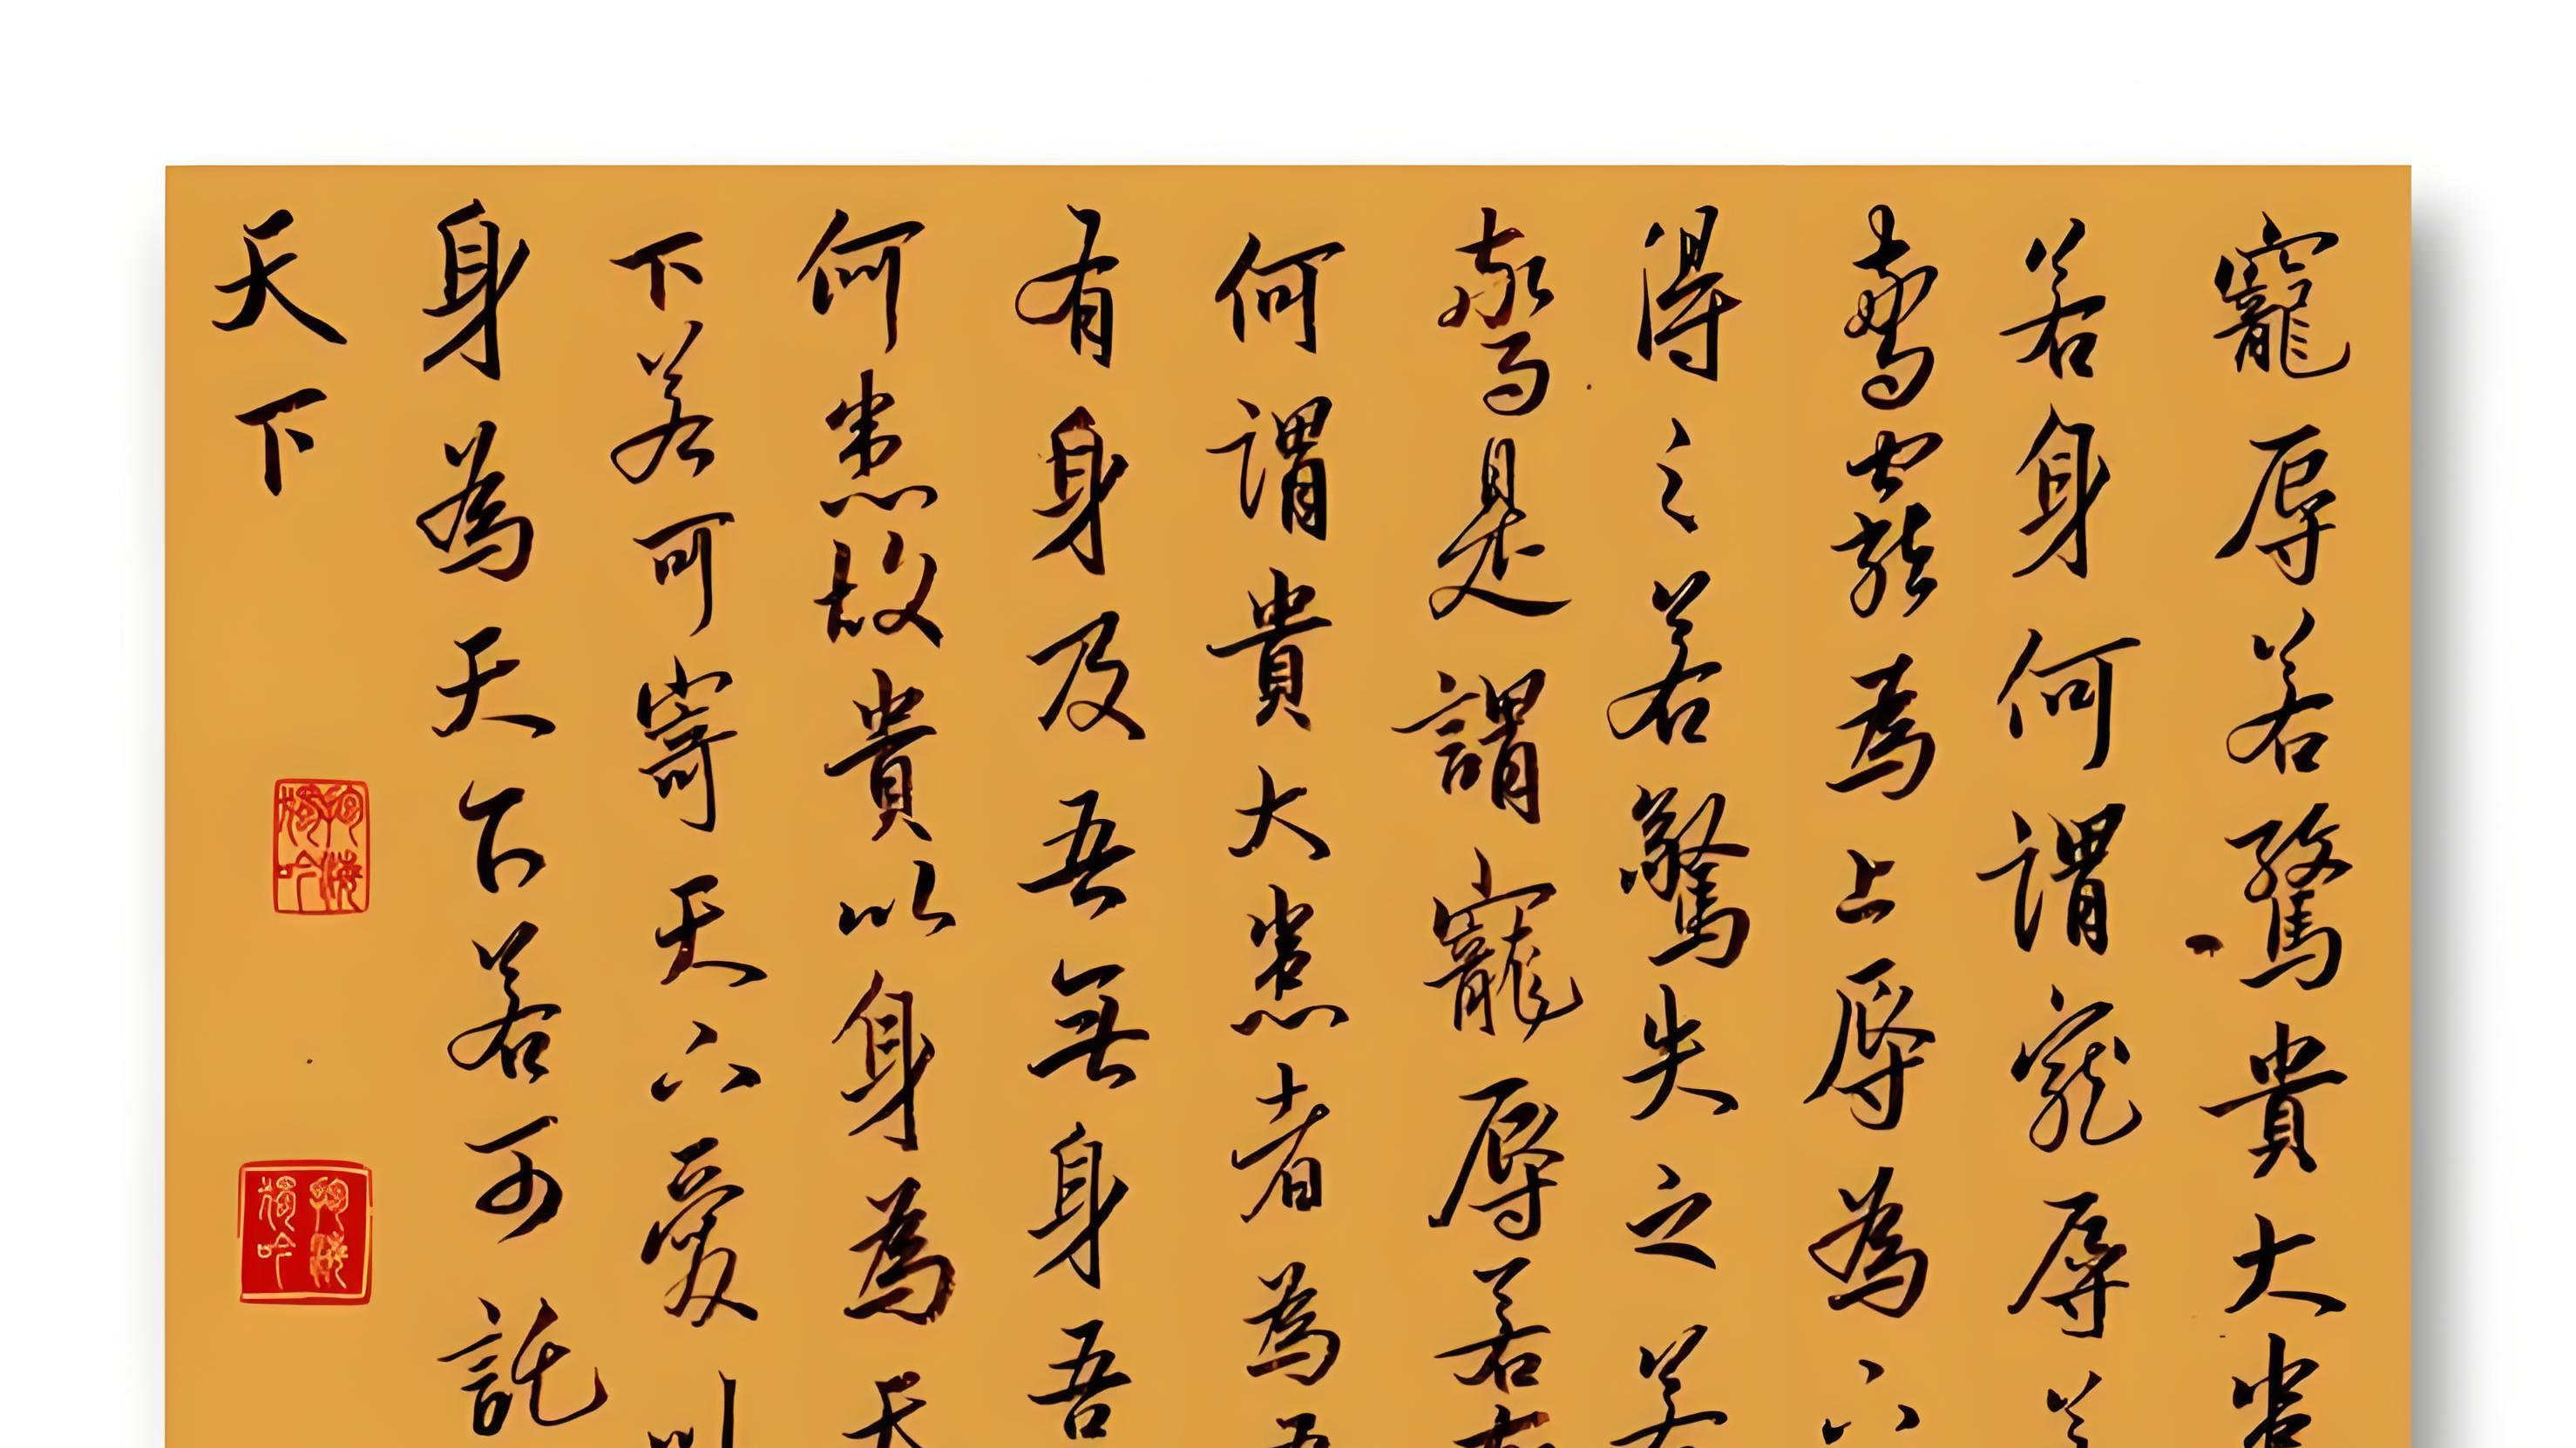 寵辱若驚貴大患
若身何謂寵辱若
驚寵為上辱為下
得之若驚失之若
驚是謂寵辱若
何謂貴大患者為
有身及吾無身吾
何患故貴以身為天
下若可寄天下愛以
身為天下若可託
天下